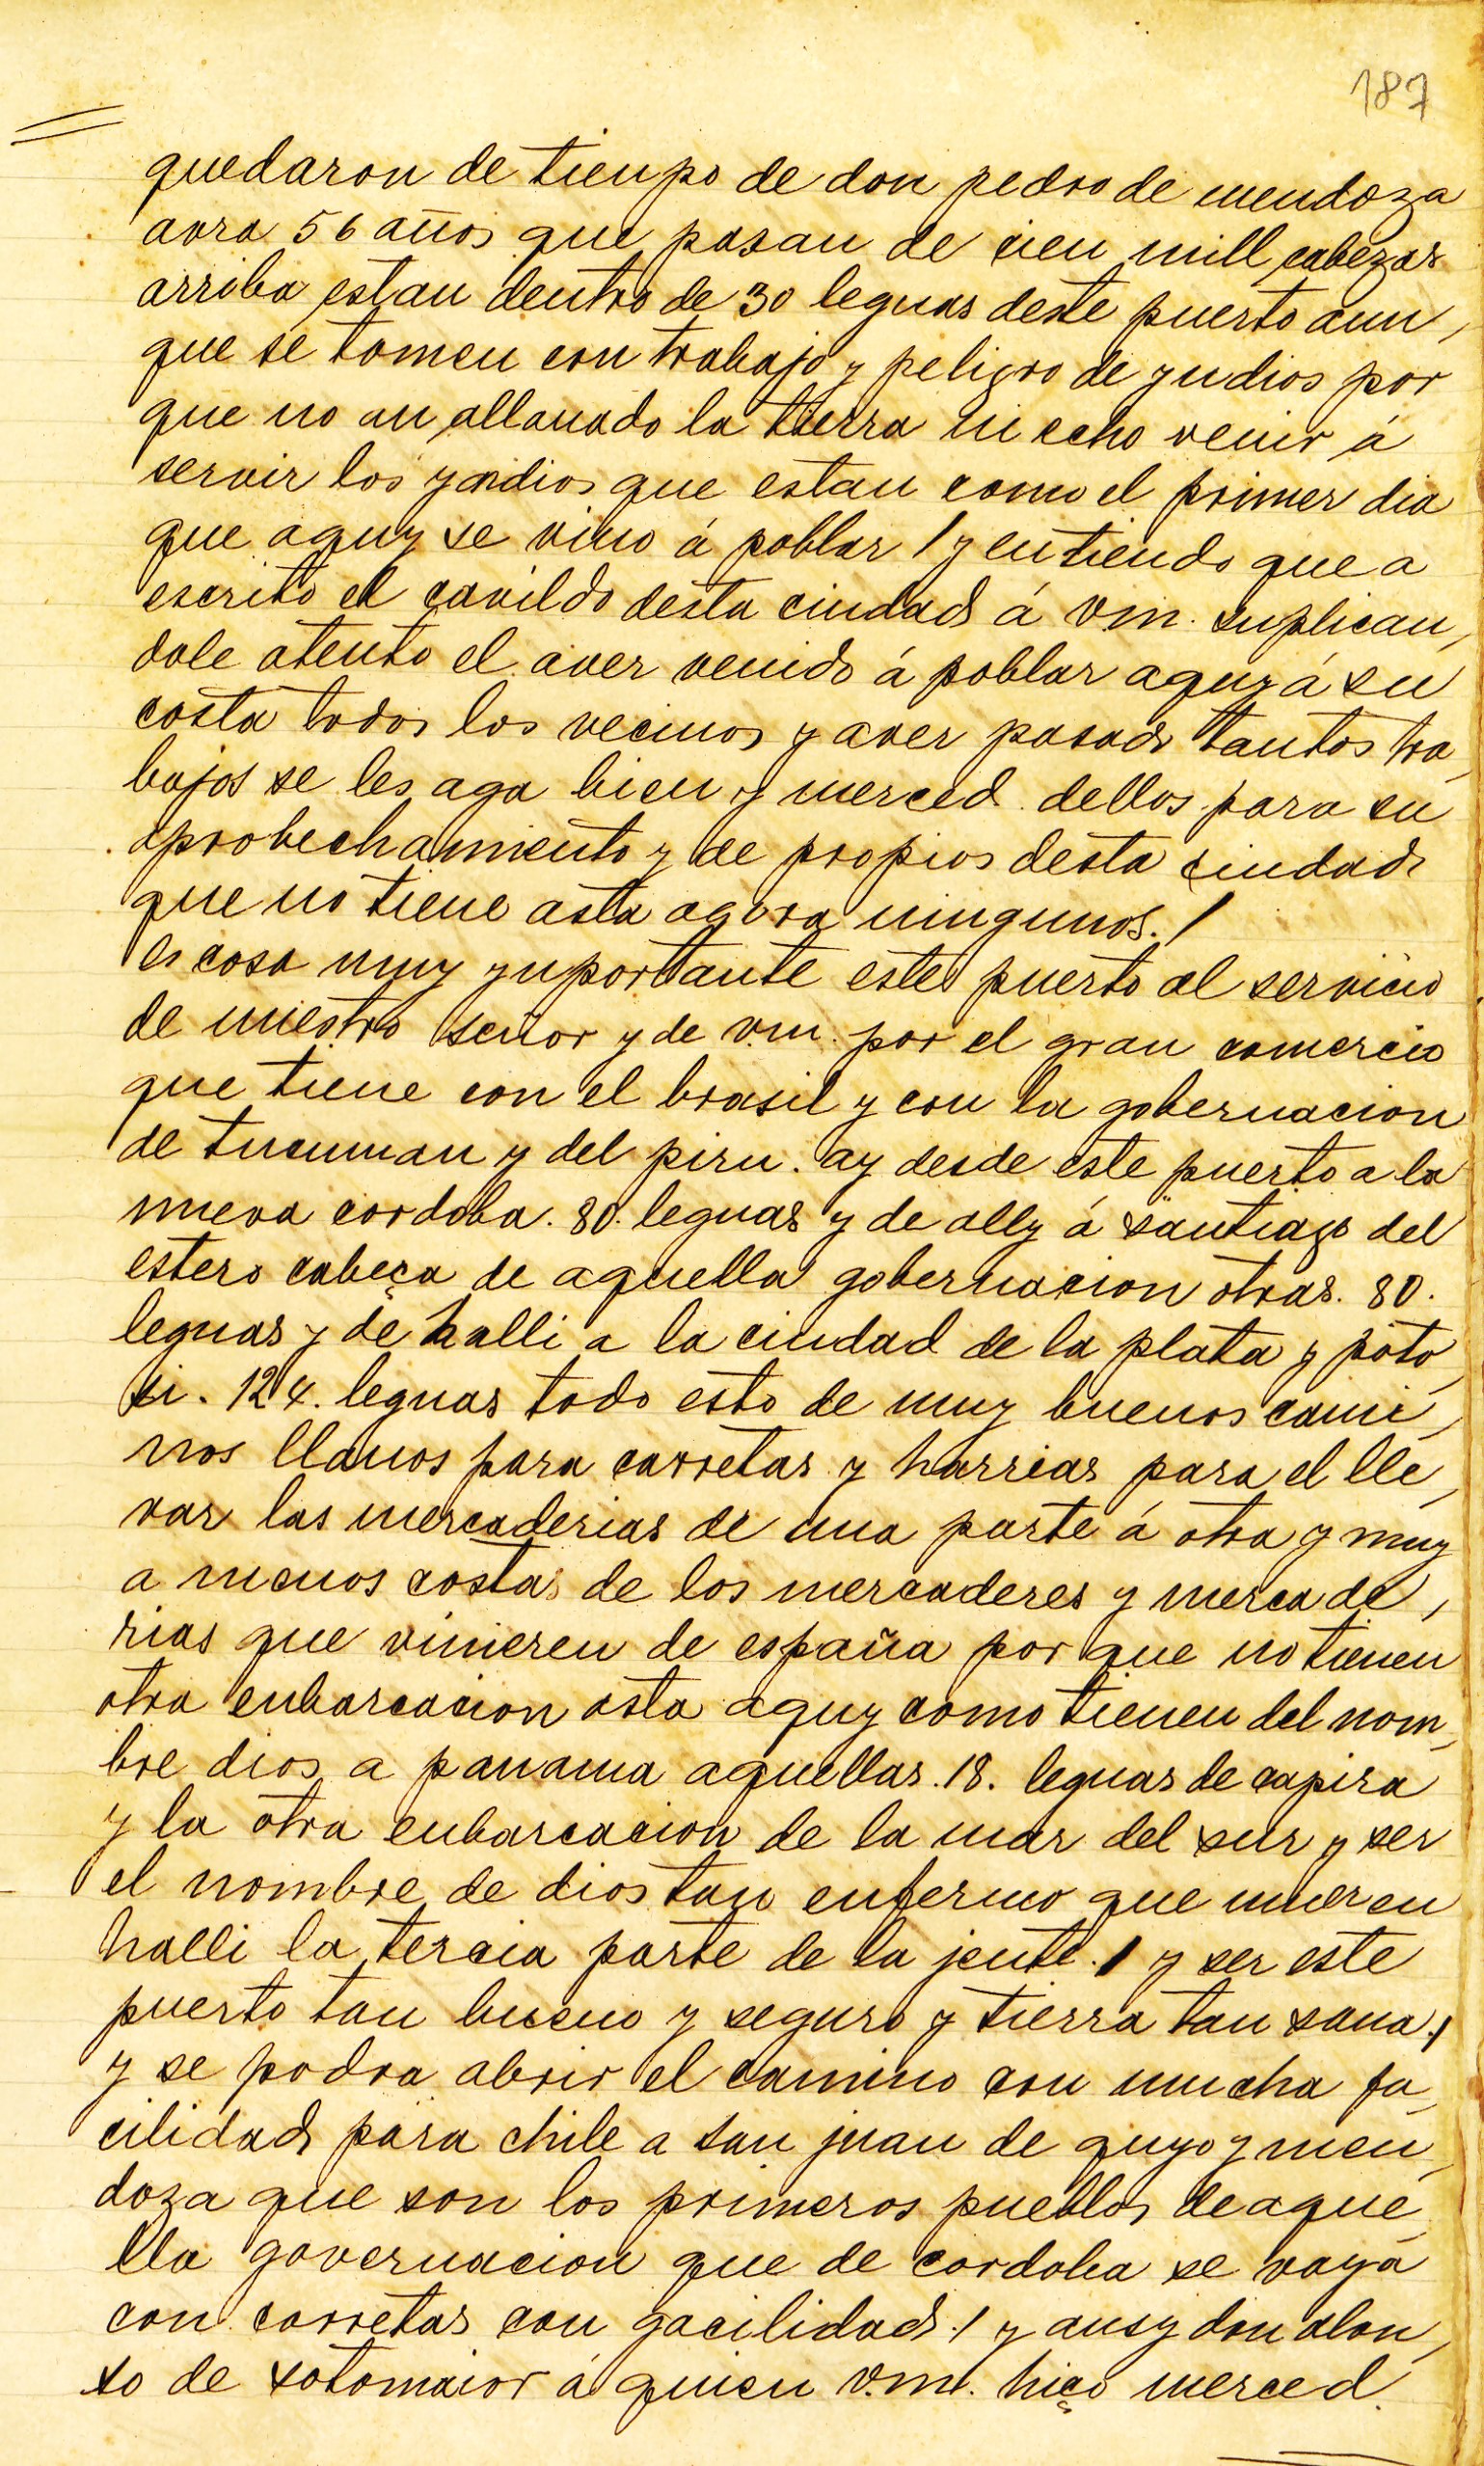 187
quedaron de tienpo de don pedro de mendoza
avra 56 años que pasan de cien mill cabezas
arriba estan dentro de 30 leguas deste puerto aun,
que se tomen con trabajo y peligro de yndios por
que no an allanado la tierra ni echo venir á
servir los yndios que estan como el primer dia
que aquy se vino á poblar / y entiendo que a
escrito el cavildo desta ciudad á v.m. suplican,
dole atento el aver venido á poblar aquy á su
costa todos los vecinos y aver pasado tantos tra,
bajos se les aga bien y merced dellos para su
aprobechamiento y de propios desta ciudad
que no tiene asta agora ningunos. /
es cosa muy ynportante este puerto al servicio
de nuestro señor y de v.m. por el gran comercio
que tiene con el brasil y con la gobernacion
de tucuman y del piru. ay desde este puerto a la
nueva cordoba. 80. leguas y de ally á santiago del
estero cabeça de aquella gobernacion otras. 80.
leguas y de halli a la ciudad de la plata y poto,
si. 124. leguas todo esto de muy buenos cami,
nos llanos para carretas y harrias para el lle,
var las mercaderias de una parte á otra y muy
a menos costas de los mercaderes y mercade,
rias que vinieren de españa por que no tienen
otra enbarcacion asta aquy como tienen del nom,
bre dios a panama aquellas. 18. leguas de capira
y la otra enbarcacion de la mar del sur y ser
el nombre de dios tan enfermo que mueren
halli la tercia parte de la jente. / y ser este
puerto tan bueno y seguro y tierra tan sana. /
y se podra abrir el camino con mucha fa,
cilidad para chile a san juan de quyo y men,
doza que son los primeros pueblos de aque,
lla governacion que de cordoba se vaya
con carretas con gacilidad. / y ansy don alon,
so de sotomaior á quien v.m. hiço merced